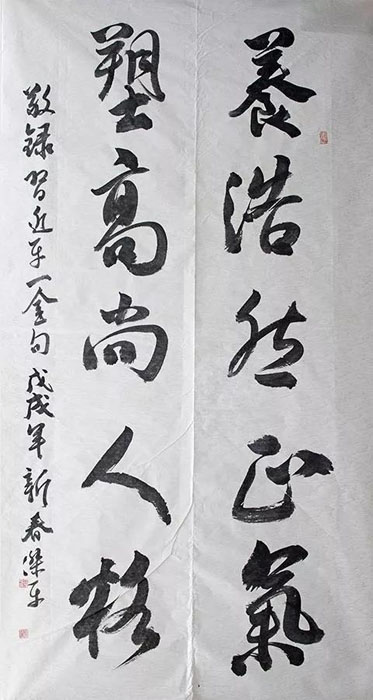 養浩然正氣
塑高尚人格
敬録習近平一金句戊戌年新春傑平